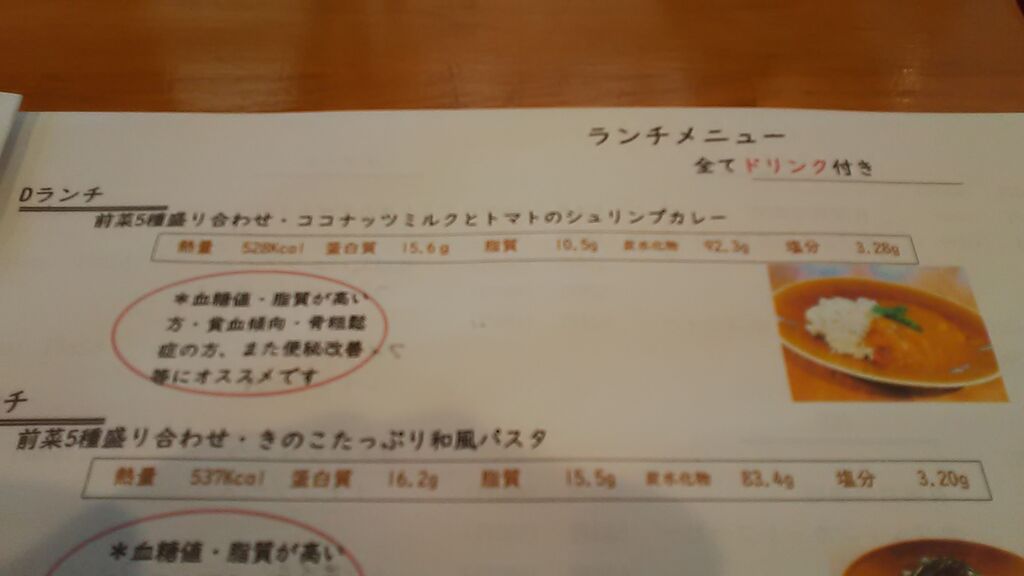 ランチメニュー
全てドリンク付き
Dランチ
前菜5種盛り合わせ・ココナッツミルクとトマトのシュリンプカレー
熱量 528Kcal 蛋白質 15.6g 脂質 10.5g 炭水化物 92.3g 塩分 3.28g
*血糖値・脂質が高い
方・貧血傾向・骨粗鬆
症の方、また便秘改善
等にオススメです
チ
前菜5種盛り合わせ・きのこたっぷり和風パスタ
熱量 537Kcal 蛋白質 16.2g 脂質 15.5g 炭水化物 83.4g 塩分 3.20g
*血糖値・脂質が高い